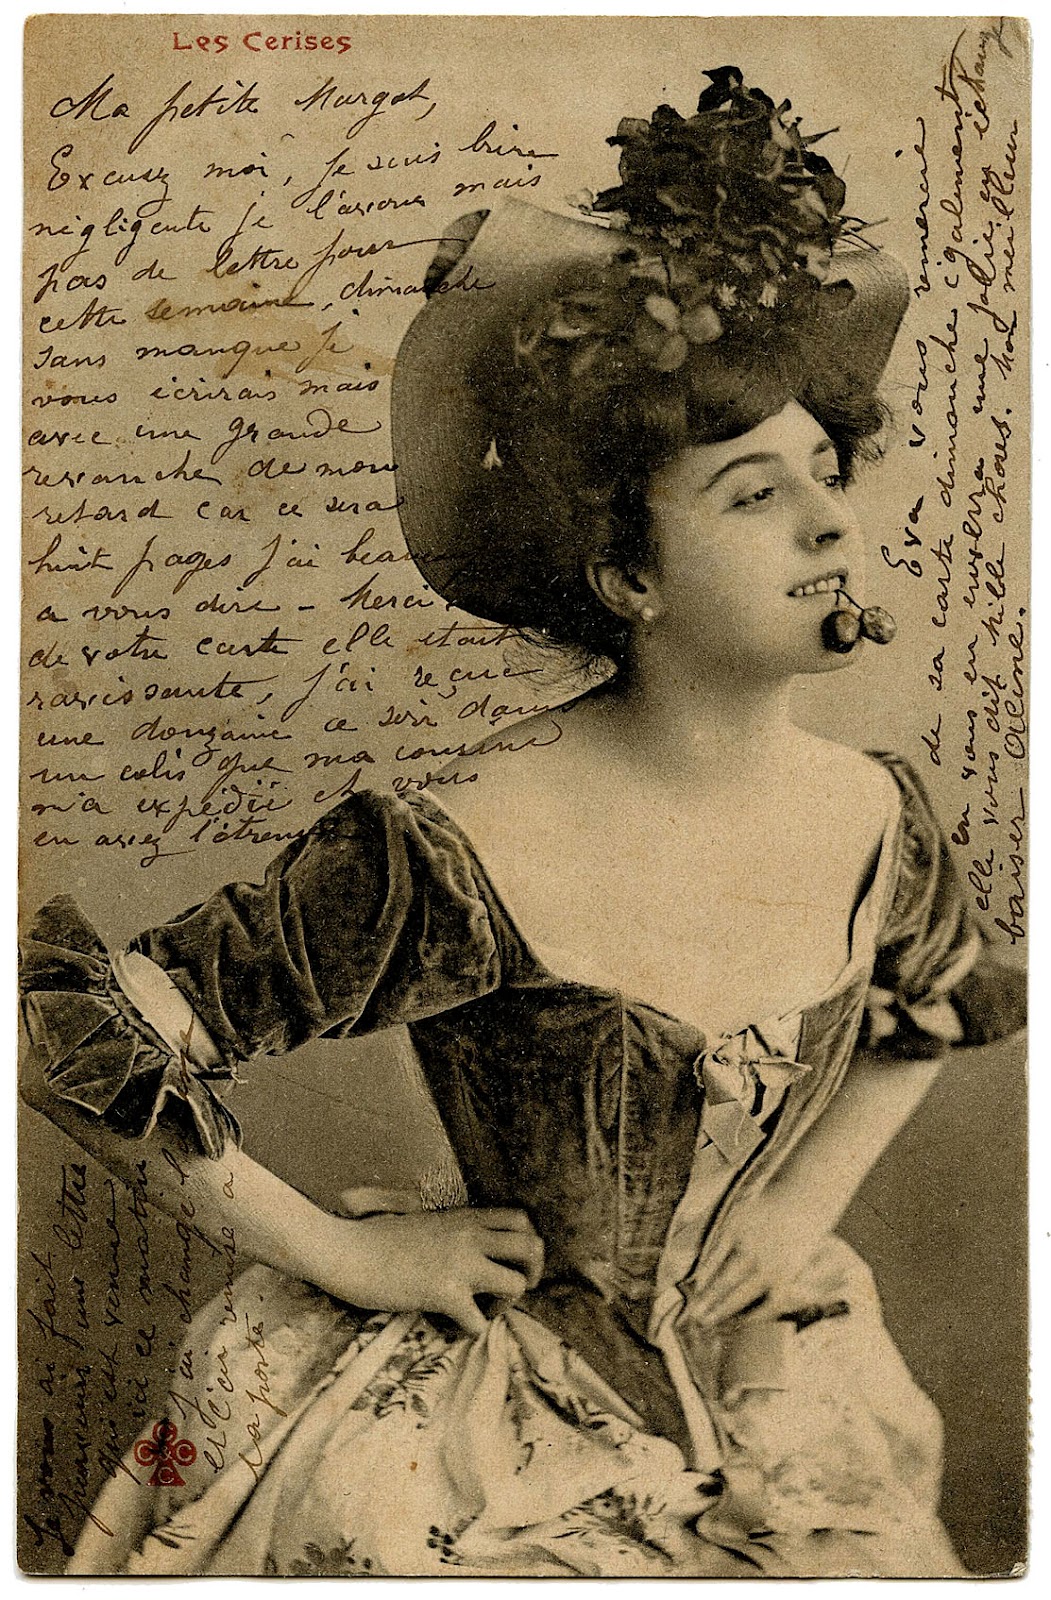 Les Cerises
Ma petite Margot,
Excusez moi, je suis bien
négligente je l'avoue mais
pas de lettre pour
cette semaine, dimanche
sans manque je
vous écrirais mais
avec une grande
revanche de mon
retard car ce sera
huit pages j'ai beaucoup
a vous dire - Merci
de votre carte elle etait
ravissante, j'ai reçue
une douzaine ce soir dans
un colis que ma cousine
m'a expédié et vous
en avez l'étrenne
Eva vous remercie
de sa carte dimanche également
en vous en enverra une jolie en échange
elle vous dit mille choses. Mon meilleur
baiser
Je vous ai fait
une lettre
qui est venue
ici ce matin
j'ai changé
et l'ai remise a
la porte.
C C C